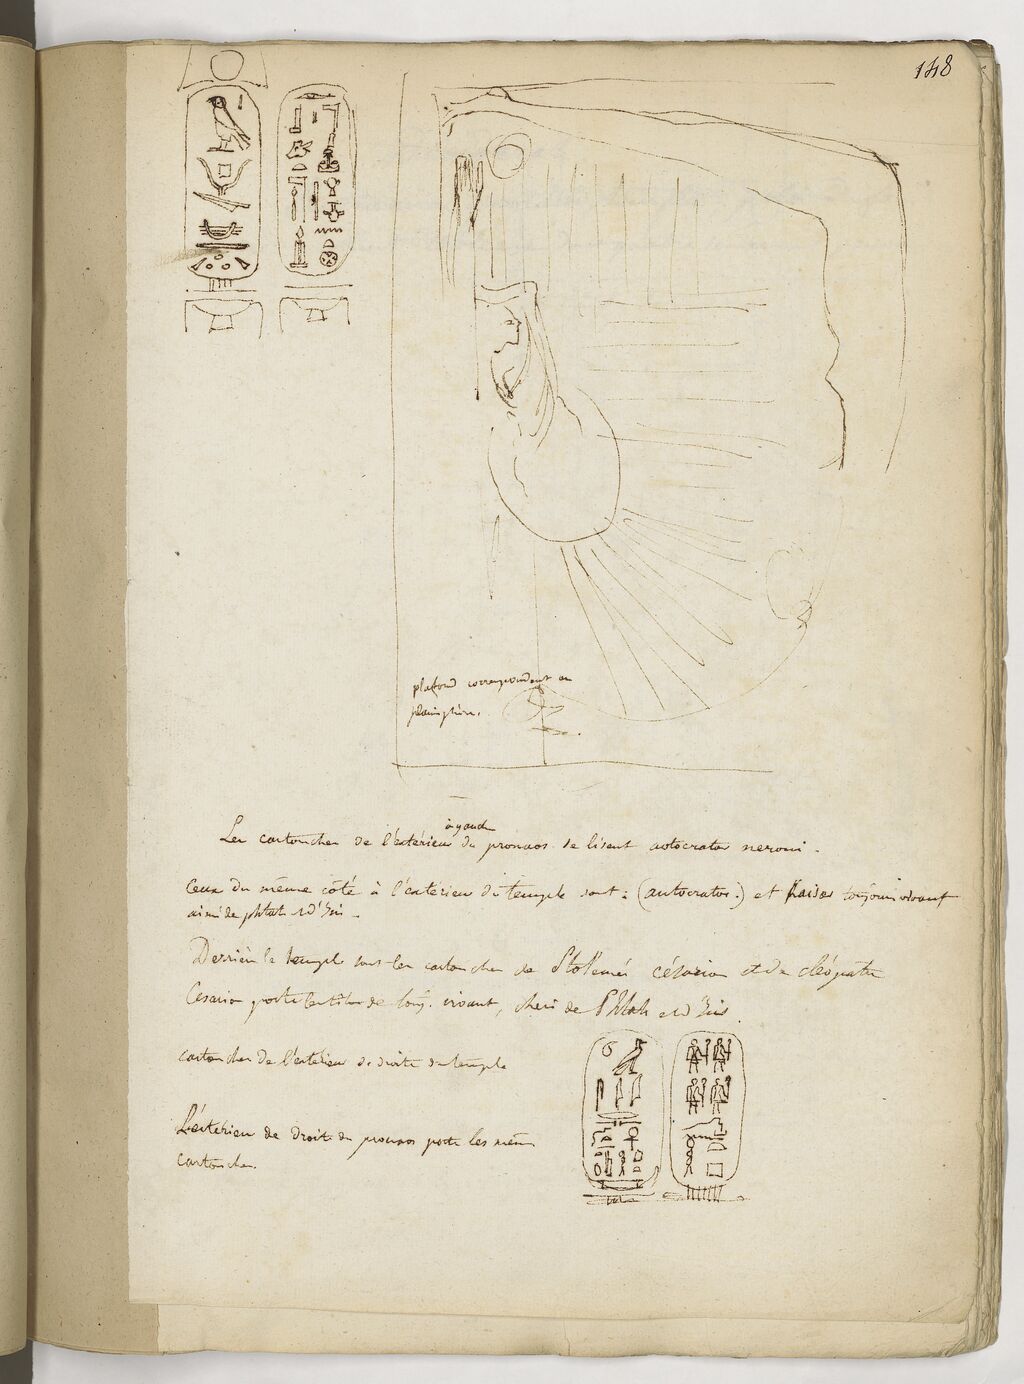 148
plafond correspondant au
à gauche
Les cartouches de l'extérieur du pronaos se lisent autocrator neroni.
Ceux du même côté à l'extérieur du temple sont: (autocrator.) et Kaisar toujours vivant
aimé de phtah et d'Isis.
Derrière le temple sont les cartouches de Ptolémée césarion et de cléopatre
Cesarion porte les titres de touj. vivant, cheri de Phtah et d'Isis.
cartouches de l'extérieur de droite du temple
L'exterieur de droite du pronaos porte les mêmes
cartouches.